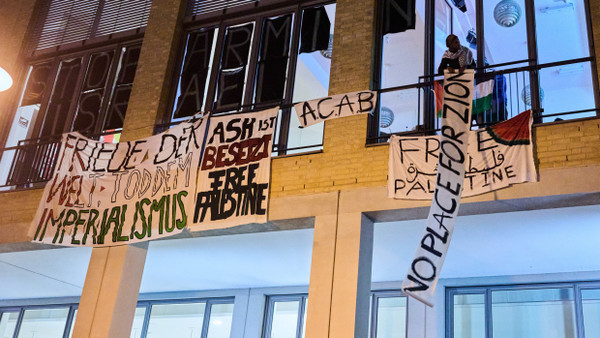 FRIEDE DER
WELT, TOD DEM
IMPERIALISMUS
ASH IST
BESETZT
FREE
PALESTINE
A.C.A.B
FREE
PALESTINE
NO PLACE FOR ZION